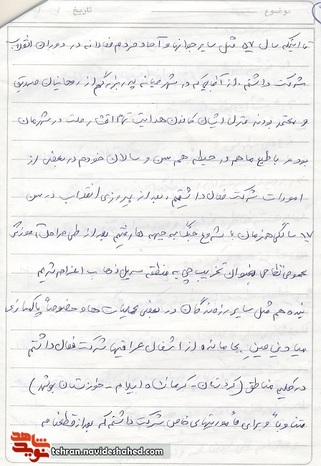 موضوع
تاریخ / /
تا اینکه سال ۵۷ مثل سایر جوانها و آحاد مردم فعالانه در دوران انقلاب
شرکت داشتم، از آنجائیکه در شهر میانه پدر بزرگم از روحانیان صدیق
و معتمر بودند منزل ایشان کانون هدایت اقشار ملت در شهرمان
بود و بالطبع ما هم در حیطه هم سن و سالان خودم در بعضی از
امورات شرکت فعال داشتم، بعد از پیروزی انقلاب در سن
۱۷ سالگی همزمان با شروع جنگ به جبهه ها رفتم بعد از طی مراحل آموزش
عمومی نظامی بعنوان تخریب چی به منطقه سرپل ذهاب اعزام شدیم
بنده هم مثل سایر رزمندگان در بعضی عملیات ها و خصوصاً پاکسازی
میادین مین بجا مانده از اشغال عراقیها شرکت فعال داشتم
در کلیه مناطق (کردستان - کرمانشاه ایلام - خوزستان بوشهر)
متناوباً و برای مأموریتهای خاص شرکت داشتم که بعد از قطعنامه
نوید شاهد
tehran.navideshahed.com